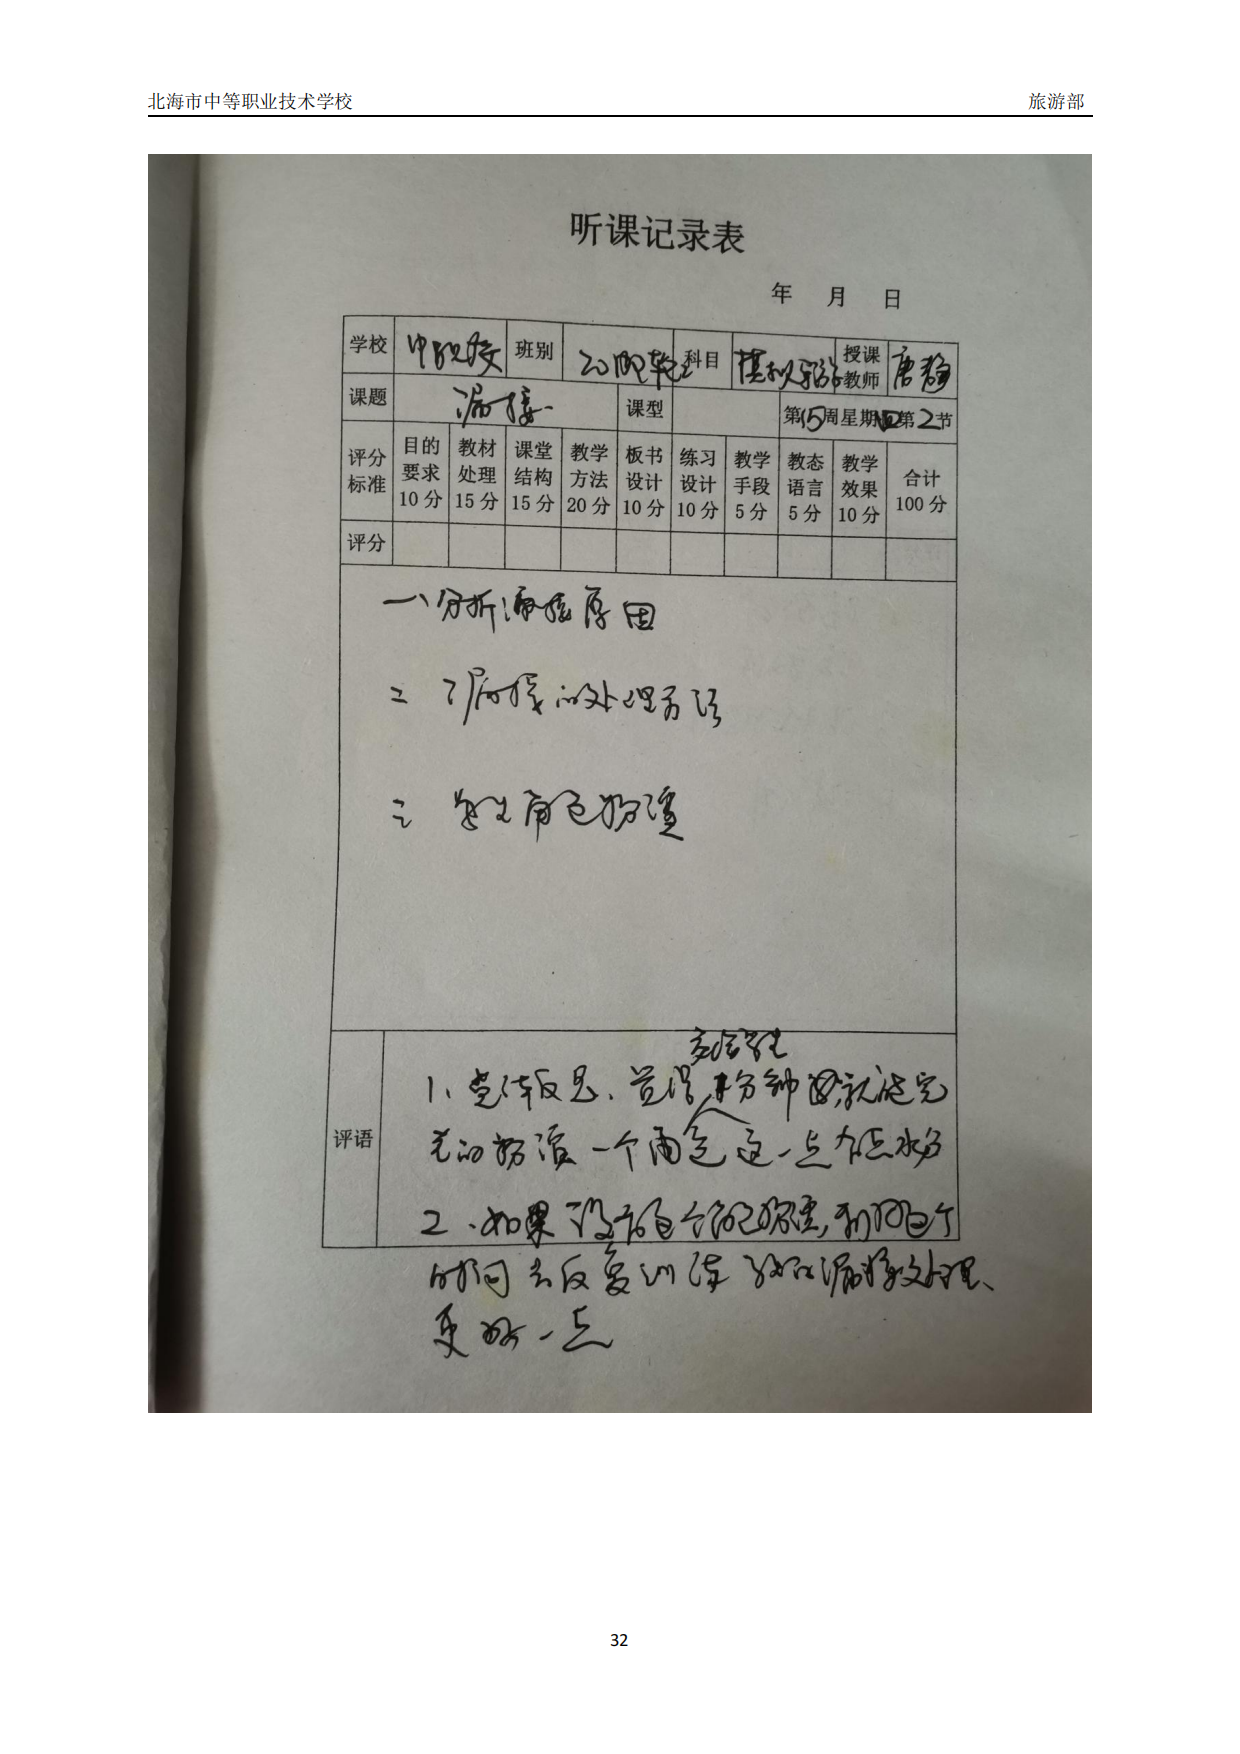 北海市中等职业技术学校 旅游部
听课记录表
年 月 日
学校 中职校 班别 科目 模拟导游 授课教师 唐静
课题 漏接 课型 第15周星期四第2节
评分标准 目的要求10分 教材处理15分 课堂结构15分 教学方法20分 板书设计10分 练习设计10分 教学手段5分 教态语言5分 教学效果10分 合计100分
评分
一、分析漏接原因
二 漏接的处理方法
三 学生角色扮演
交给学生
1、觉得 分钟 就能完
的扮演一个角色 这一点有点水分
评语
2、如果没 扮演,利用这个
时间去反复训练 漏接处理、
更好一点
32